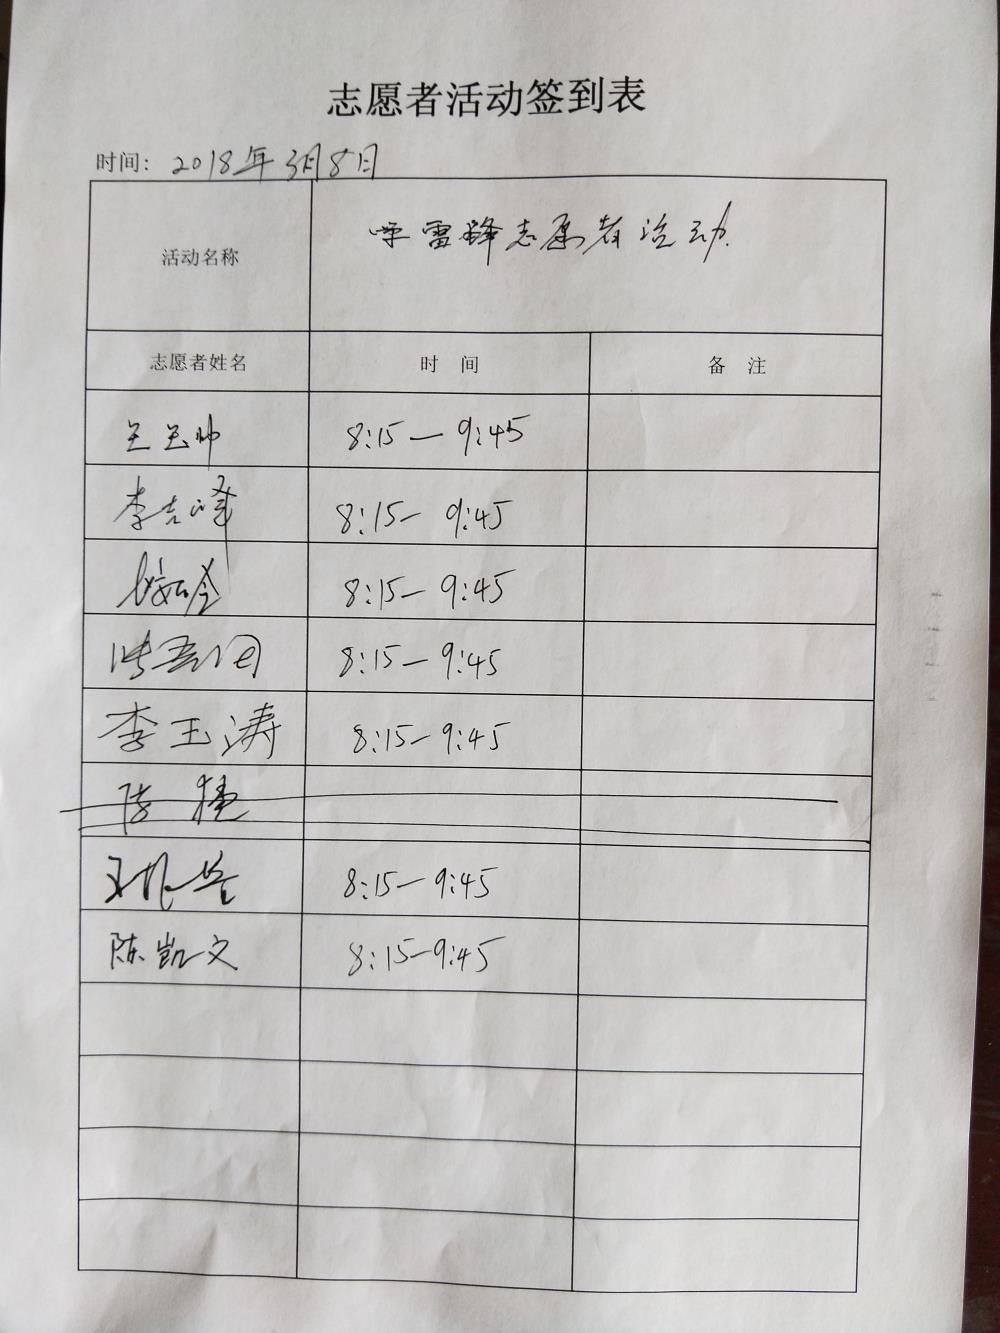 志愿者活动签到表
时间: 2018年3月8日
活动名称 学雷锋志愿者活动.
志愿者姓名 时 间 备 注
8:15—9:45
李吉峰 8:15—9:45
8:15—9:45
8:15—9:45
李玉涛 8:15—9:45
捷
王 8:15—9:45
陈凯文 8:15—9:45